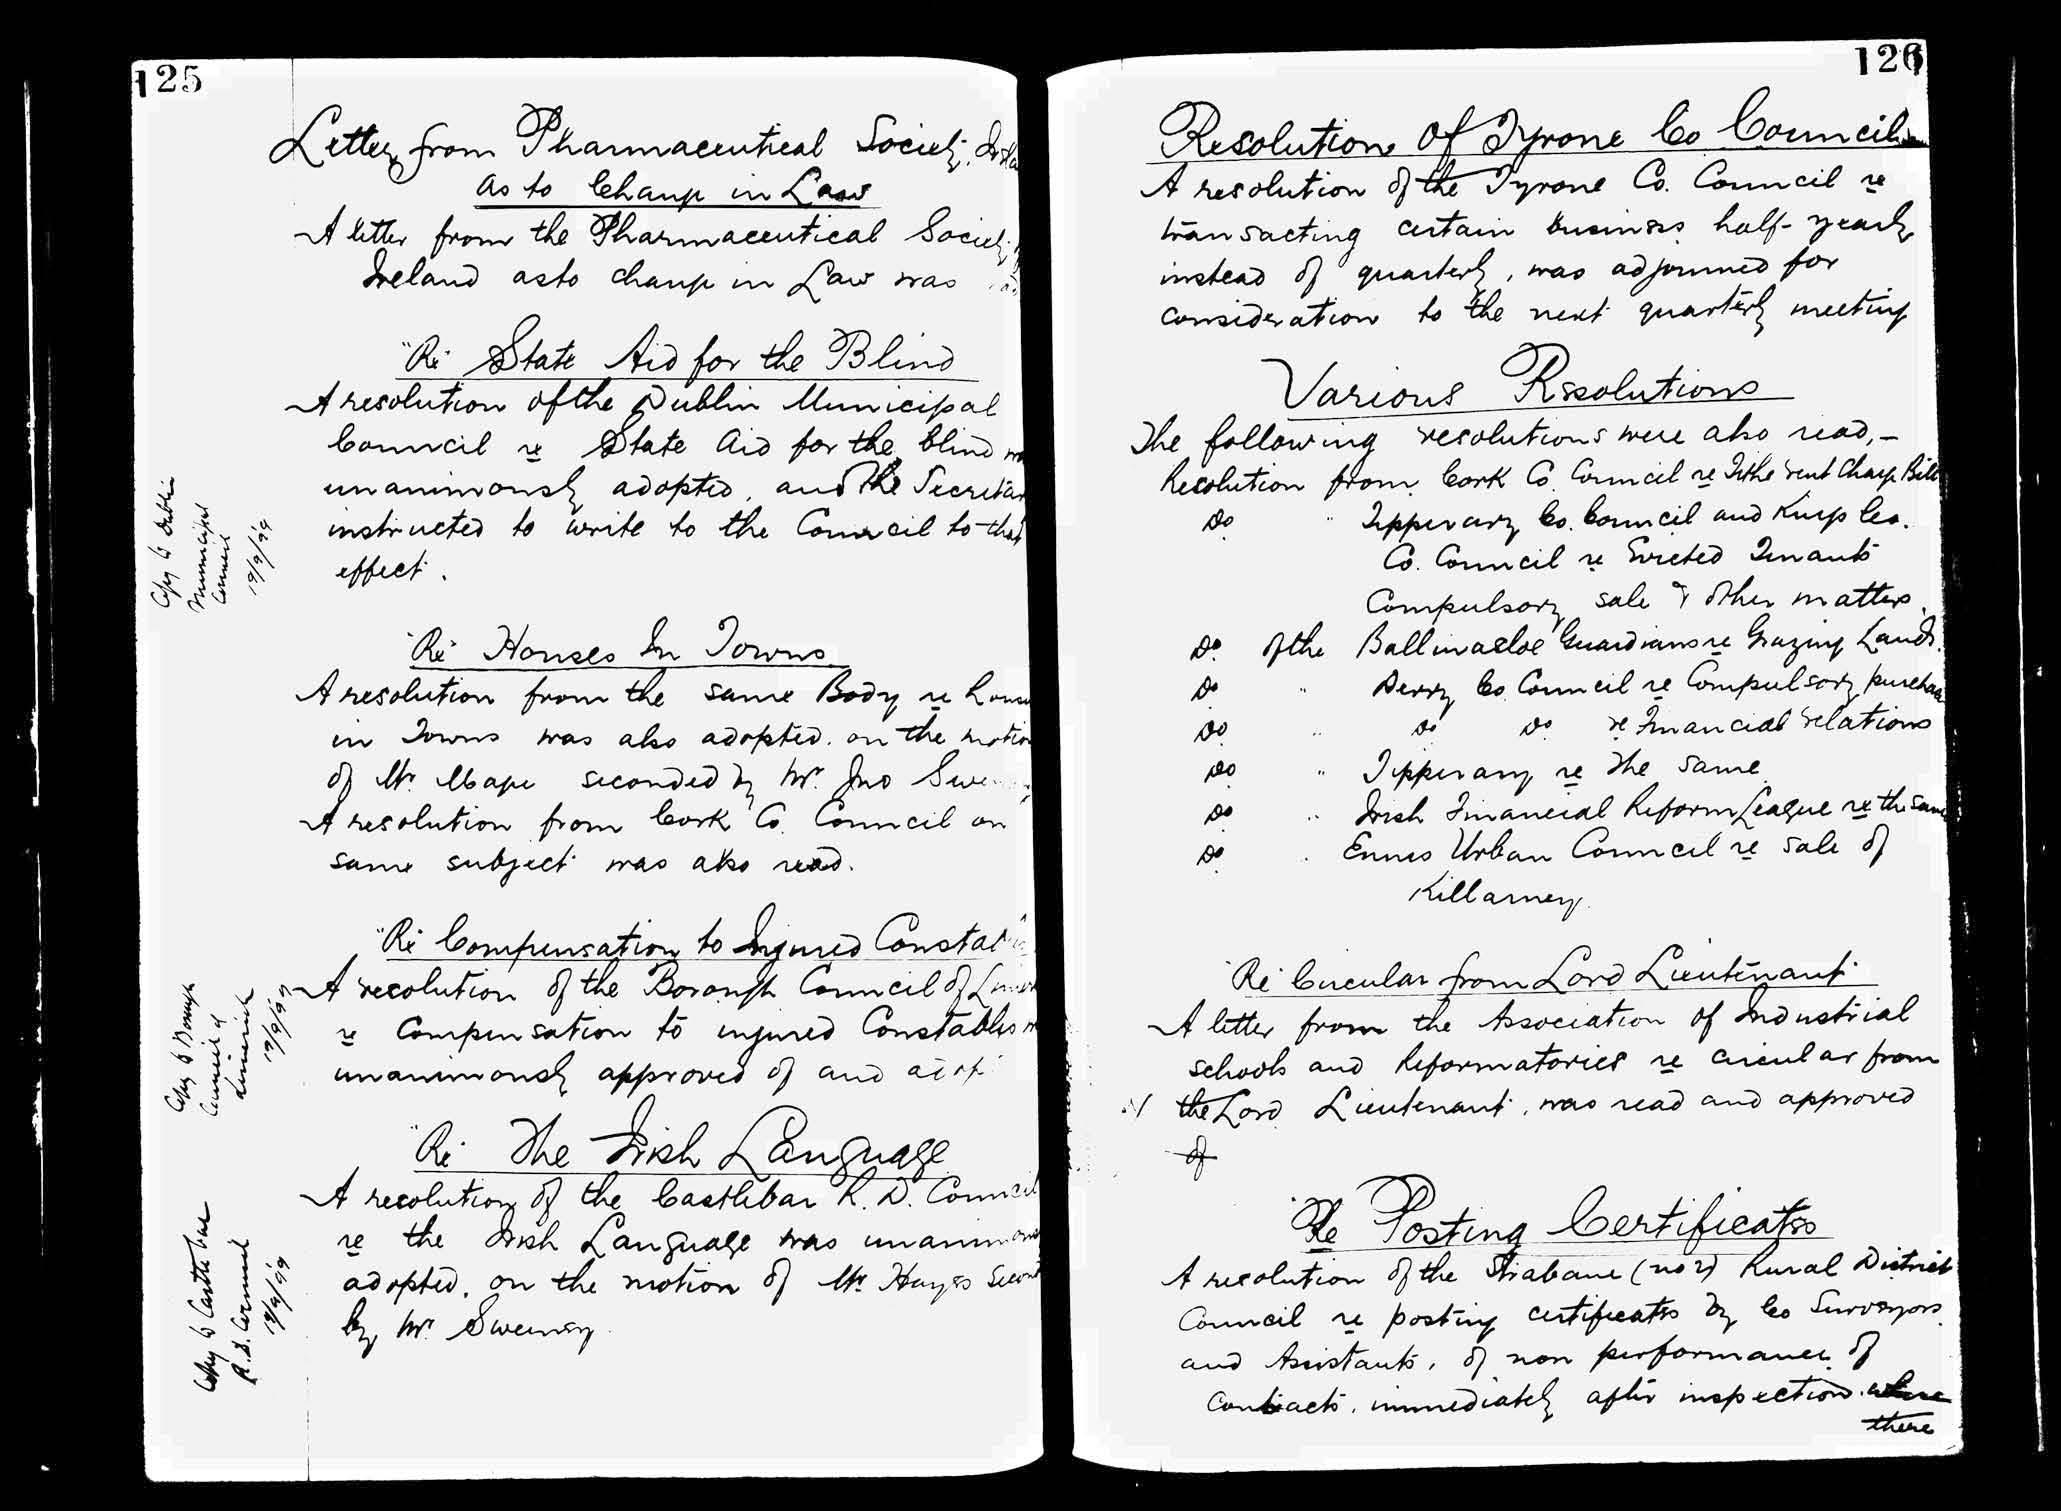 125
Letter from Pharmaceutical Society,
as to Change in Law
A letter from the Pharmaceutical Society
Ireland as to change in Law was
"Re" State Aid for the Blind
A resolution of the Dublin Municipal
Council re State Aid for the blind
unanimously adopted, and the Secretar
instructed to write to the Council to that
effect.
Copy to Dublin
Municipal
Council
19/9/99
"Re" Houses In Towns
A resolution from the same Body re hous
in Towns was also adopted, on the motio
of Mr. Mape seconded by Mr. Jno Swe
A resolution from Cork Co. Council on
same subject was also read.
"Re" Compensation to Injured Constab
A resolution of the Borough Council of Limer
re Compensation to injured Constables
unanimously approved of and adop
Copy to Borough
Council of
Limerick
19/9/99
"Re" The Irish Language
A resolution of the Castlebar R. D. Council
re the Irish Language was unanimous
adopted, on the motion of Mr. Hayes Secon
by Mr. Sweeney
Copy to Castlebar
R. D. Council
19/9/99
126
Resolution Of Tyrone Co Council
A resolution of the Tyrone Co. Council re
transacting certain business half-yearly
instead of quarterly, was adjourned for
consideration to the next quarterly meeting
Various Resolutions
The following resolutions were also read,-
Resolution from Cork Co. Council re Tithe rent Charge Bill
Do " Tipperary Co. Council and Kings Co.
Co. Council re Evicted Tenants
Compulsory sale & other matters.
Do of the Ballinasloe Guardians re Grazing Lands.
Do " Derry Co. Council re Compulsory purchase
Do " Do Do re Financial relations
Do " Tipperary re the same
Do " Irish Financial Reform League re the same
Do " Ennis Urban Council re sale of
Killarney
"Re" Circular from Lord Lieutenant
A letter from the Association of Industrial
schools and Reformatories re circular from
the Lord Lieutenant, was read and approved
of
"Re" Posting Certificates
A resolution of the Strabane (No 2) Rural District
Council re posting certificates by Co Surveyors
and Assistants, of non performance of
contracts, immediately after inspection where
there